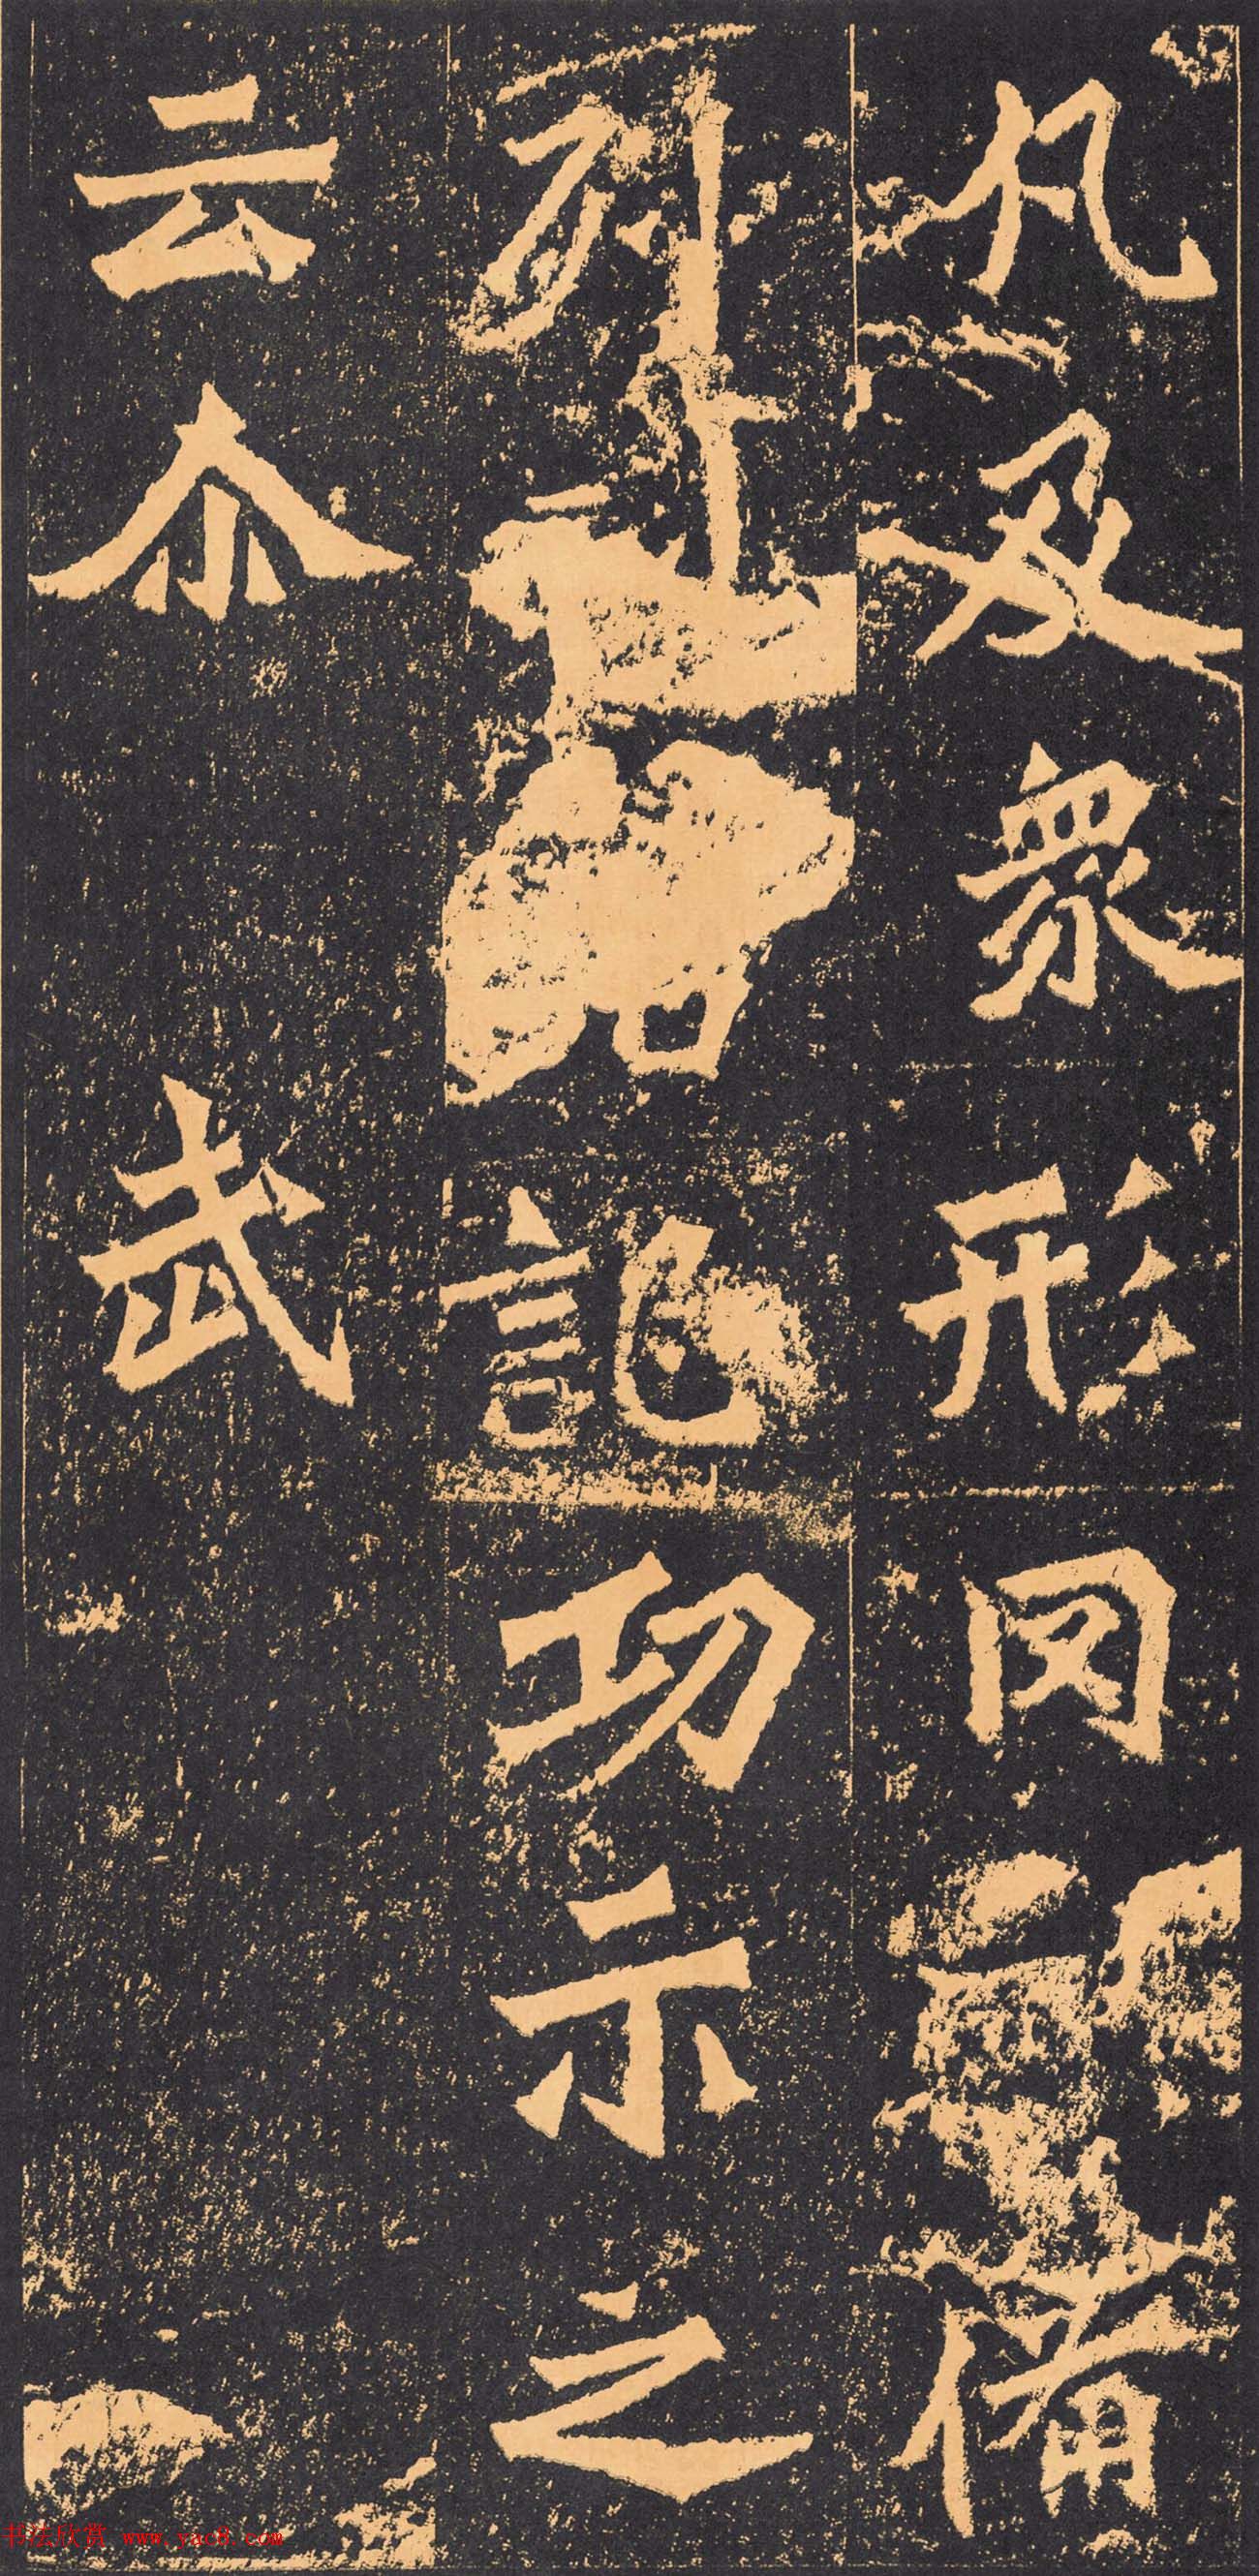 凡及衆形罔備
列石記功示之
云尒 武
书法欣赏 www.yac8.com